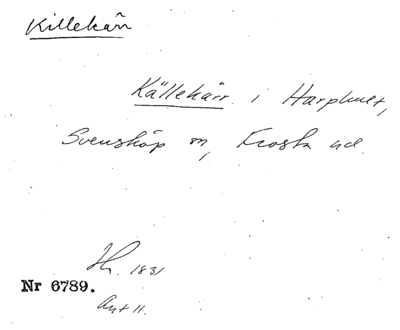 Killekärr
Källekärr i Harphult,
Svensköp sn, Frosta hd.
1831
Nr 6789.
Avt 11.